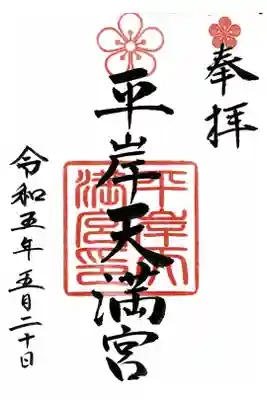 奉拝
平岸天満宮
平岸天
満宮印
令和五年五月二十日